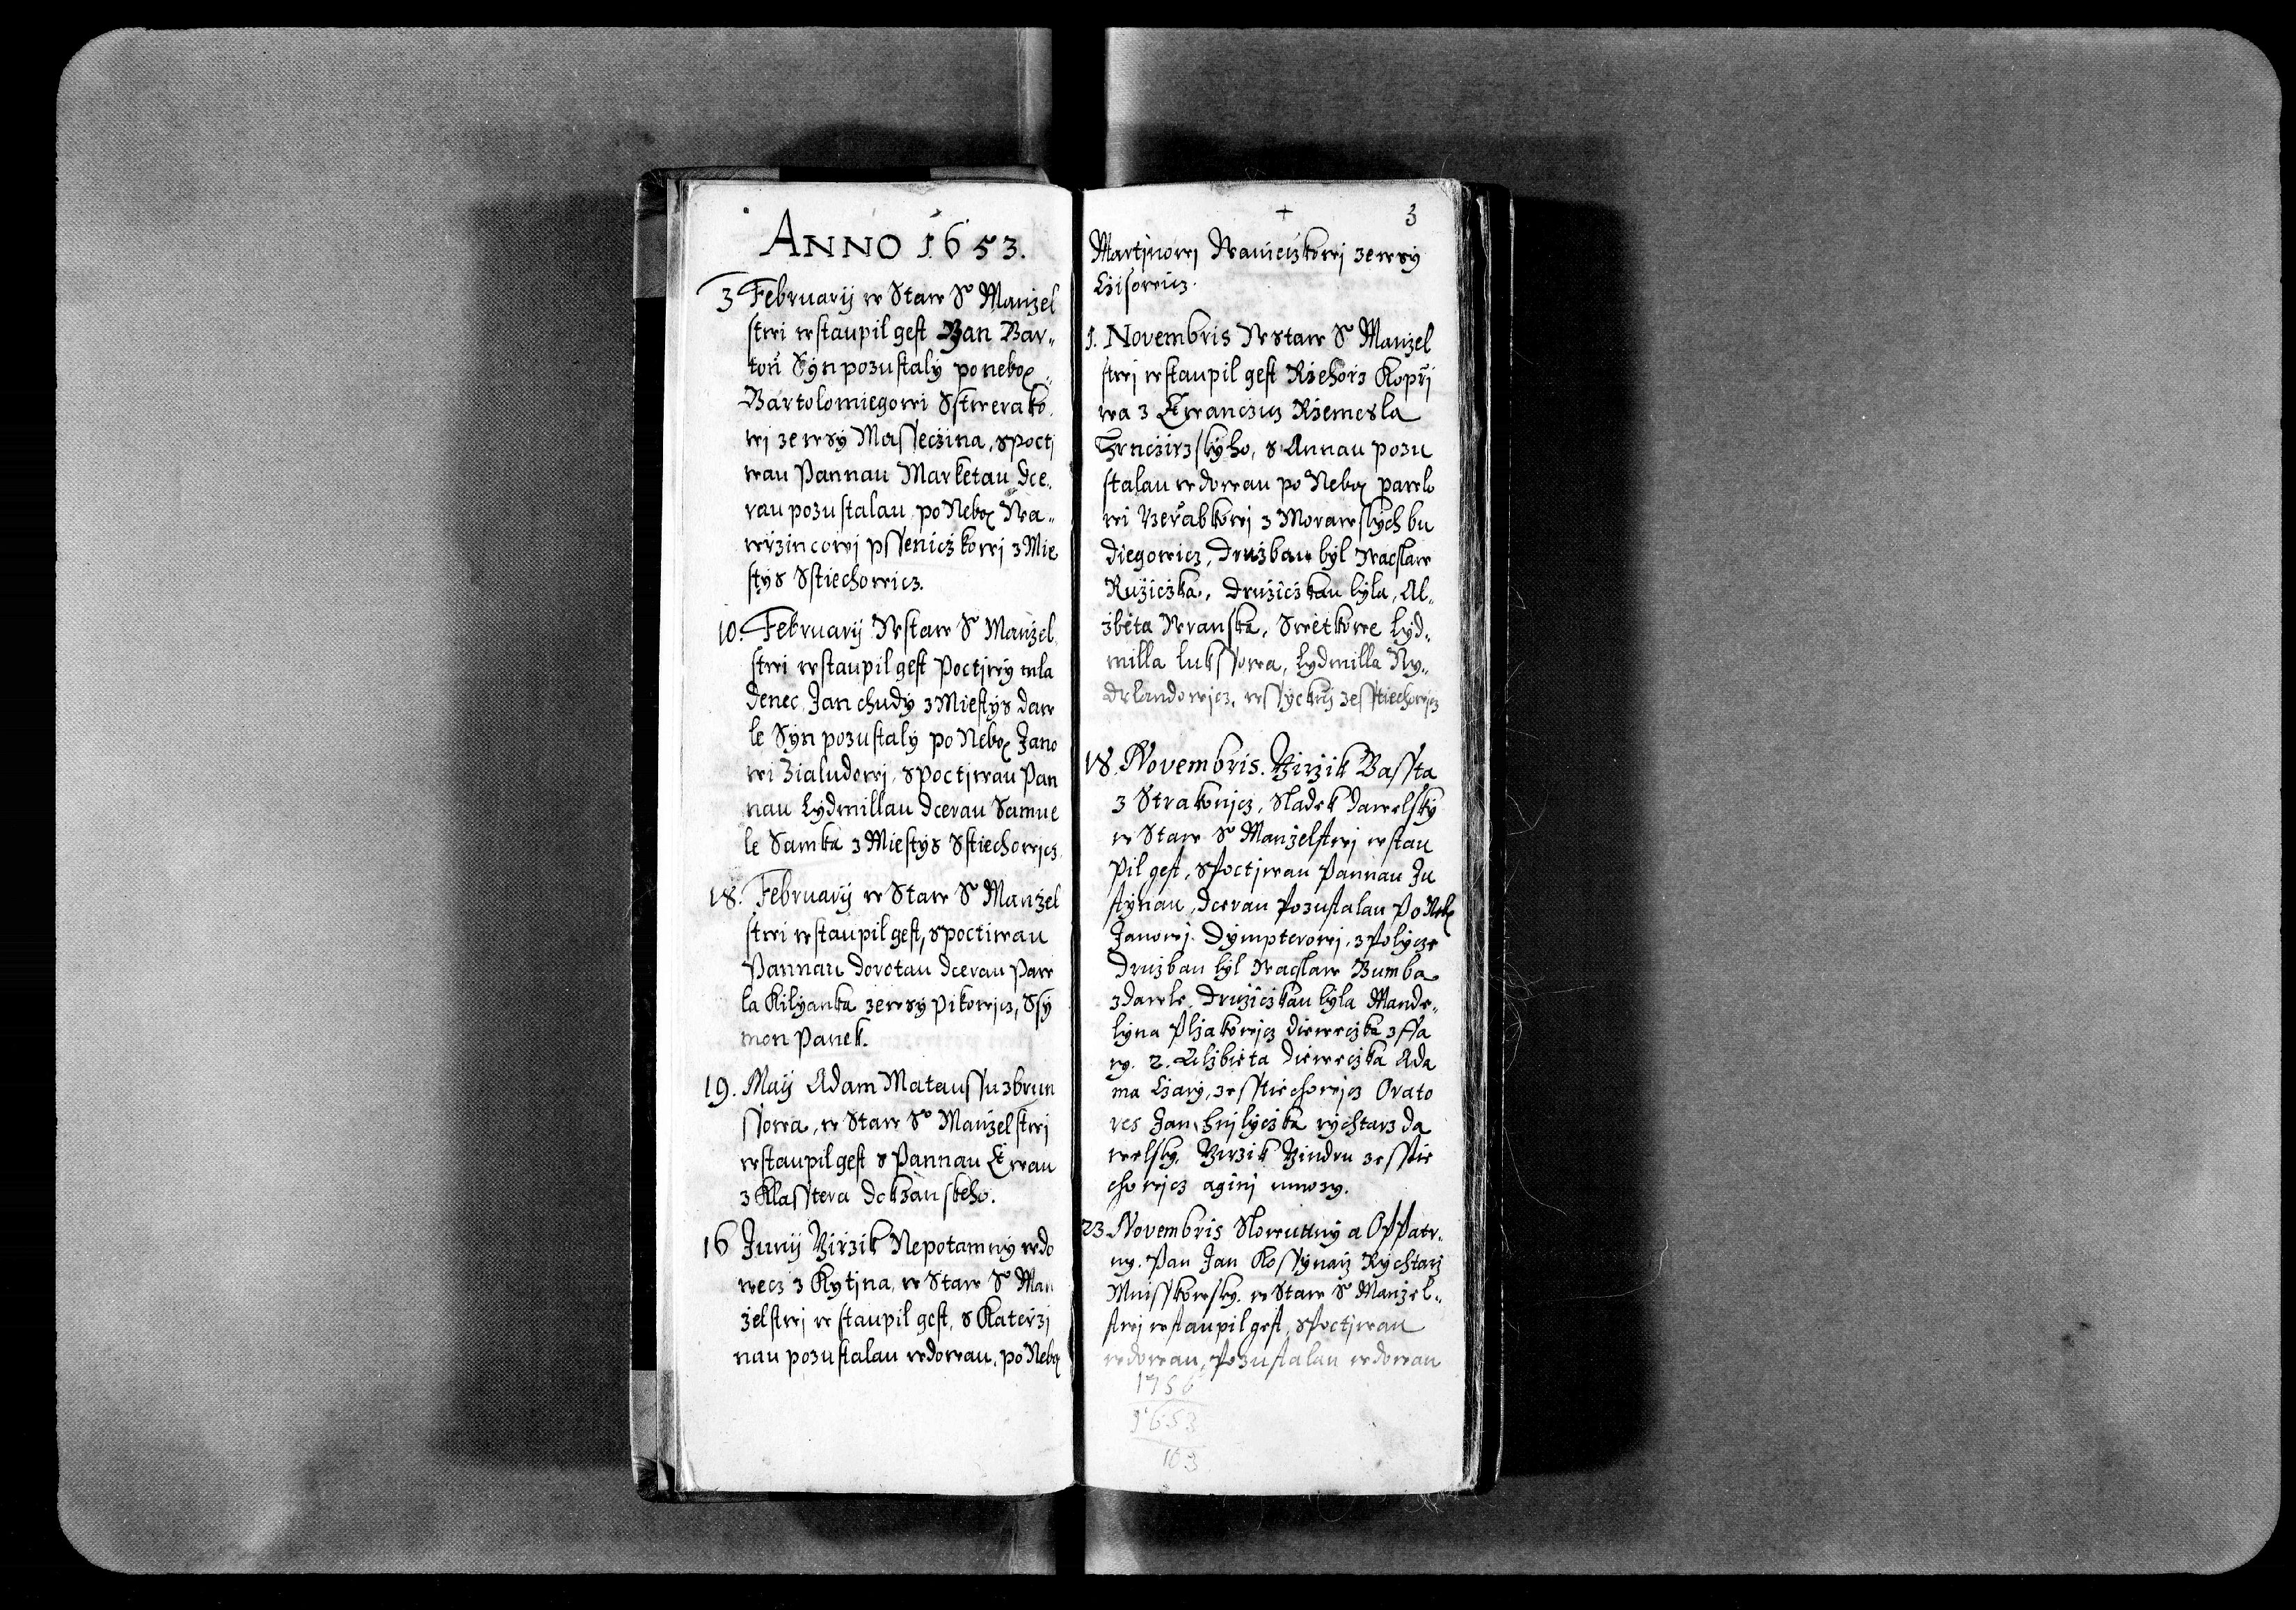 ANNO 1653.
3 Februarij w Staw S° Manžel
stwi wstaupil gest Yan Bar„
toň Syn pozustaly po nebož
Bartolomiegowi Sstwerako
wi ze wsy Masseczina, s pocti
wau Pannau Marketau dce„
rau pozustalau po Nebož Wa„
wrzincowi pssenicžkowi z Mie
stys Sstiechowicz.
10. Februarij W staw S° Manžel
stwi wstaupil gest Poctiwý mla
denec Jan chudy z Miestys daw
le Syn pozustaly po Nebož Jano
wi Zialudowi, s poctiwau Pan
nau Lydmillau dcerau Samue
le Samka z Miestys Sstiechowicz
18. Februarij w Staw S° Manžel
stwi wstaupil gest, s poctiwau
Pannau dorotau dcerau Paw
la Kilyanka ze wsy Pikowicz, Ssy
mon Panek.
19. Maij Adam Mataussu z brun
ssowa, w Staw S° Manželstwi
wstaupil gest s Pannau Ewau
z Klasstera doksanskeho.
16 Junij Yiržik Nepotamny wdo
wecz z Kytina, w Staw S° Man
želstwj w staupil gest, s Kateržj
nau pozustalau wdowau, po Nebož
3
Martjnowj Wanieczkowj ze wsy
Czisowicz.
1. Novembris W staw S° Manžel
stwj wstaupil gest Ržehorz Kopřj
wa z Ewanczicz Ržemesla
Hrnczirzskýho, s Annau pozu
stalau wdowau po Nebož pawlo
wi Yeřabkowj z Morawských bu
diegowicz, družbau byl Waclaw
Ružiczka, družiczkau byla, Al„
žběta Wranska, Swětkowe Lyd„
milla lukssowa, Lydmilla Ny„
drlandowicz, wssyckni ze Sstiechowicz
18. Novembris. Yiržik Bassta
z Strakonicz, Sladek dawelsky
w Staw S° Manželstwj wstau
pil gest, s Poctjwau Pannau Ju
stýnau, dcerau Pozustalau Po Nebož
Janowj. Dýmpterowj, z Polycze
družbau byl Waclaw Bumba
z dawle, družiczkau byla Mande„
lýna Pljakowicz diewecžka z ffa
ry. 2. Alžbieta diewecžka Ada
ma Czary, ze Sstiechowicz Orato
res Jan Hnjlycžka rychtarz da
welsky, Yiržik Yindru ze Sstie
chowicz a ginj mnozy.
23. Novembris Slowutny a Oppatr„
ny. Pan Jan Kossynarz Rychtarz
Mnisskowsky. w Staw S° Manžel„
stwj wstaupil gest, s Poctjwau
wdowau, Pozustalau wdowau
1756
1653
103